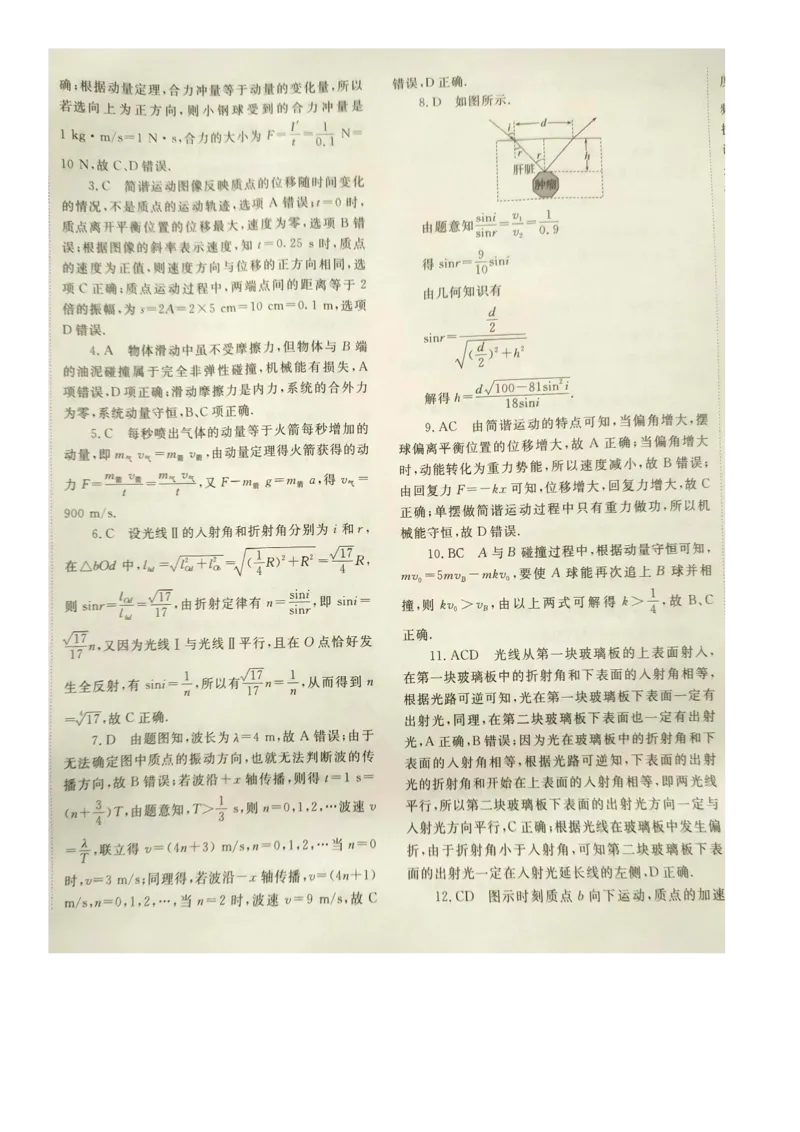 确;根据动量定理,合力冲量等于动量的变化量,所以
若选向上为正方向,则小钢球受到的合力冲量是
1 kg·m/s=1 N·s,合力的大小为 F=I′/t=1/0.1 N=
10 N,故 C、D 错误.
3.C 简谐运动图像反映质点的位移随时间变化
的情况,不是质点的运动轨迹,选项 A 错误;t=0 时,
质点离开平衡位置的位移最大,速度为零,选项 B 错
误;根据图像的斜率表示速度,知 t=0.25 s 时,质点
的速度为正值,则速度方向与位移的正方向相同,选
项 C 正确;质点运动过程中,两端点间的距离等于 2
倍的振幅,为 s=2A=2×5 cm=10 cm=0.1 m,选项
D 错误.
4.A 物体滑动中虽不受摩擦力,但物体与 B 端
的油泥碰撞属于完全非弹性碰撞,机械能有损失,A
项错误,D 项正确;滑动摩擦力是内力,系统的合外力
为零,系统动量守恒,B、C 项正确.
5.C 每秒喷出气体的动量等于火箭每秒增加的
动量,即 m气 v气=m箭 v箭,由动量定理得火箭获得的动
力 F=m箭 v箭/t=m气 v气/t,又 F-m箭 g=m箭 a,得 v气=
900 m/s.
6.C 设光线Ⅱ的入射角和折射角分别为 i 和 r,
在△bOd 中,lbd=√(l²Od+l²Ob)=√((1/4 R)²+R²)=√17/4 R,
则 sinr=lOd/lbd=√17/17,由折射定律有 n=sini/sinr,即 sini=
√17/17 n,又因为光线Ⅰ与光线Ⅱ平行,且在 O 点恰好发
生全反射,有 sini=1/n,所以有 √17/17 n=1/n,从而得到 n
=⁴√17,故 C 正确.
7.D 由题图知,波长为 λ=4 m,故 A 错误;由于
无法确定图中质点的振动方向,也就无法判断波的传
播方向,故 B 错误;若波沿+x 轴传播,则得 t=1 s=
(n+3/4)T,由题意知,T>1/3 s,则 n=0,1,2,⋯波速 v
=λ/T,联立得 v=(4n+3) m/s,n=0,1,2,⋯当 n=0
时,v=3 m/s;同理得,若波沿-x 轴传播,v=(4n+1)
m/s,n=0,1,2,⋯,当 n=2 时,波速 v=9 m/s,故 C
错误,D 正确.
8.D 如图所示.
i
d
r
r
h
肝脏
肿瘤
由题意知 sini/sinr=v₁/v₂=1/0.9
得 sinr=9/10 sini
由几何知识有
sinr=(d/2)/√((d/2)²+h²)
解得 h=d√(100-81sin²i)/18sini.
9.AC 由简谐运动的特点可知,当偏角增大,摆
球偏离平衡位置的位移增大,故 A 正确;当偏角增大
时,动能转化为重力势能,所以速度减小,故 B 错误;
由回复力 F=-kx 可知,位移增大,回复力增大,故 C
正确;单摆做简谐运动过程中只有重力做功,所以机
械能守恒,故 D 错误.
10.BC A 与 B 碰撞过程中,根据动量守恒可知,
mv₀=5mvB-mkv₀,要使 A 球能再次追上 B 球并相
撞,则 kv₀>vB,由以上两式可解得 k>1/4,故 B、C
正确.
11.ACD 光线从第一块玻璃板的上表面射入,
在第一块玻璃板中的折射角和下表面的入射角相等,
根据光路可逆可知,光在第一块玻璃板下表面一定有
出射光,同理,在第二块玻璃板下表面也一定有出射
光,A 正确,B 错误;因为光在玻璃板中的折射角和下
表面的入射角相等,根据光路可逆知,下表面的出射
光的折射角和开始在上表面的入射角相等,即两光线
平行,所以第二块玻璃板下表面的出射光方向一定与
入射光方向平行,C 正确;根据光线在玻璃板中发生偏
折,由于折射角小于入射角,可知第二块玻璃板下表
面的出射光一定在入射光延长线的左侧,D 正确.
12.CD 图示时刻质点 b 向下运动,质点的加速